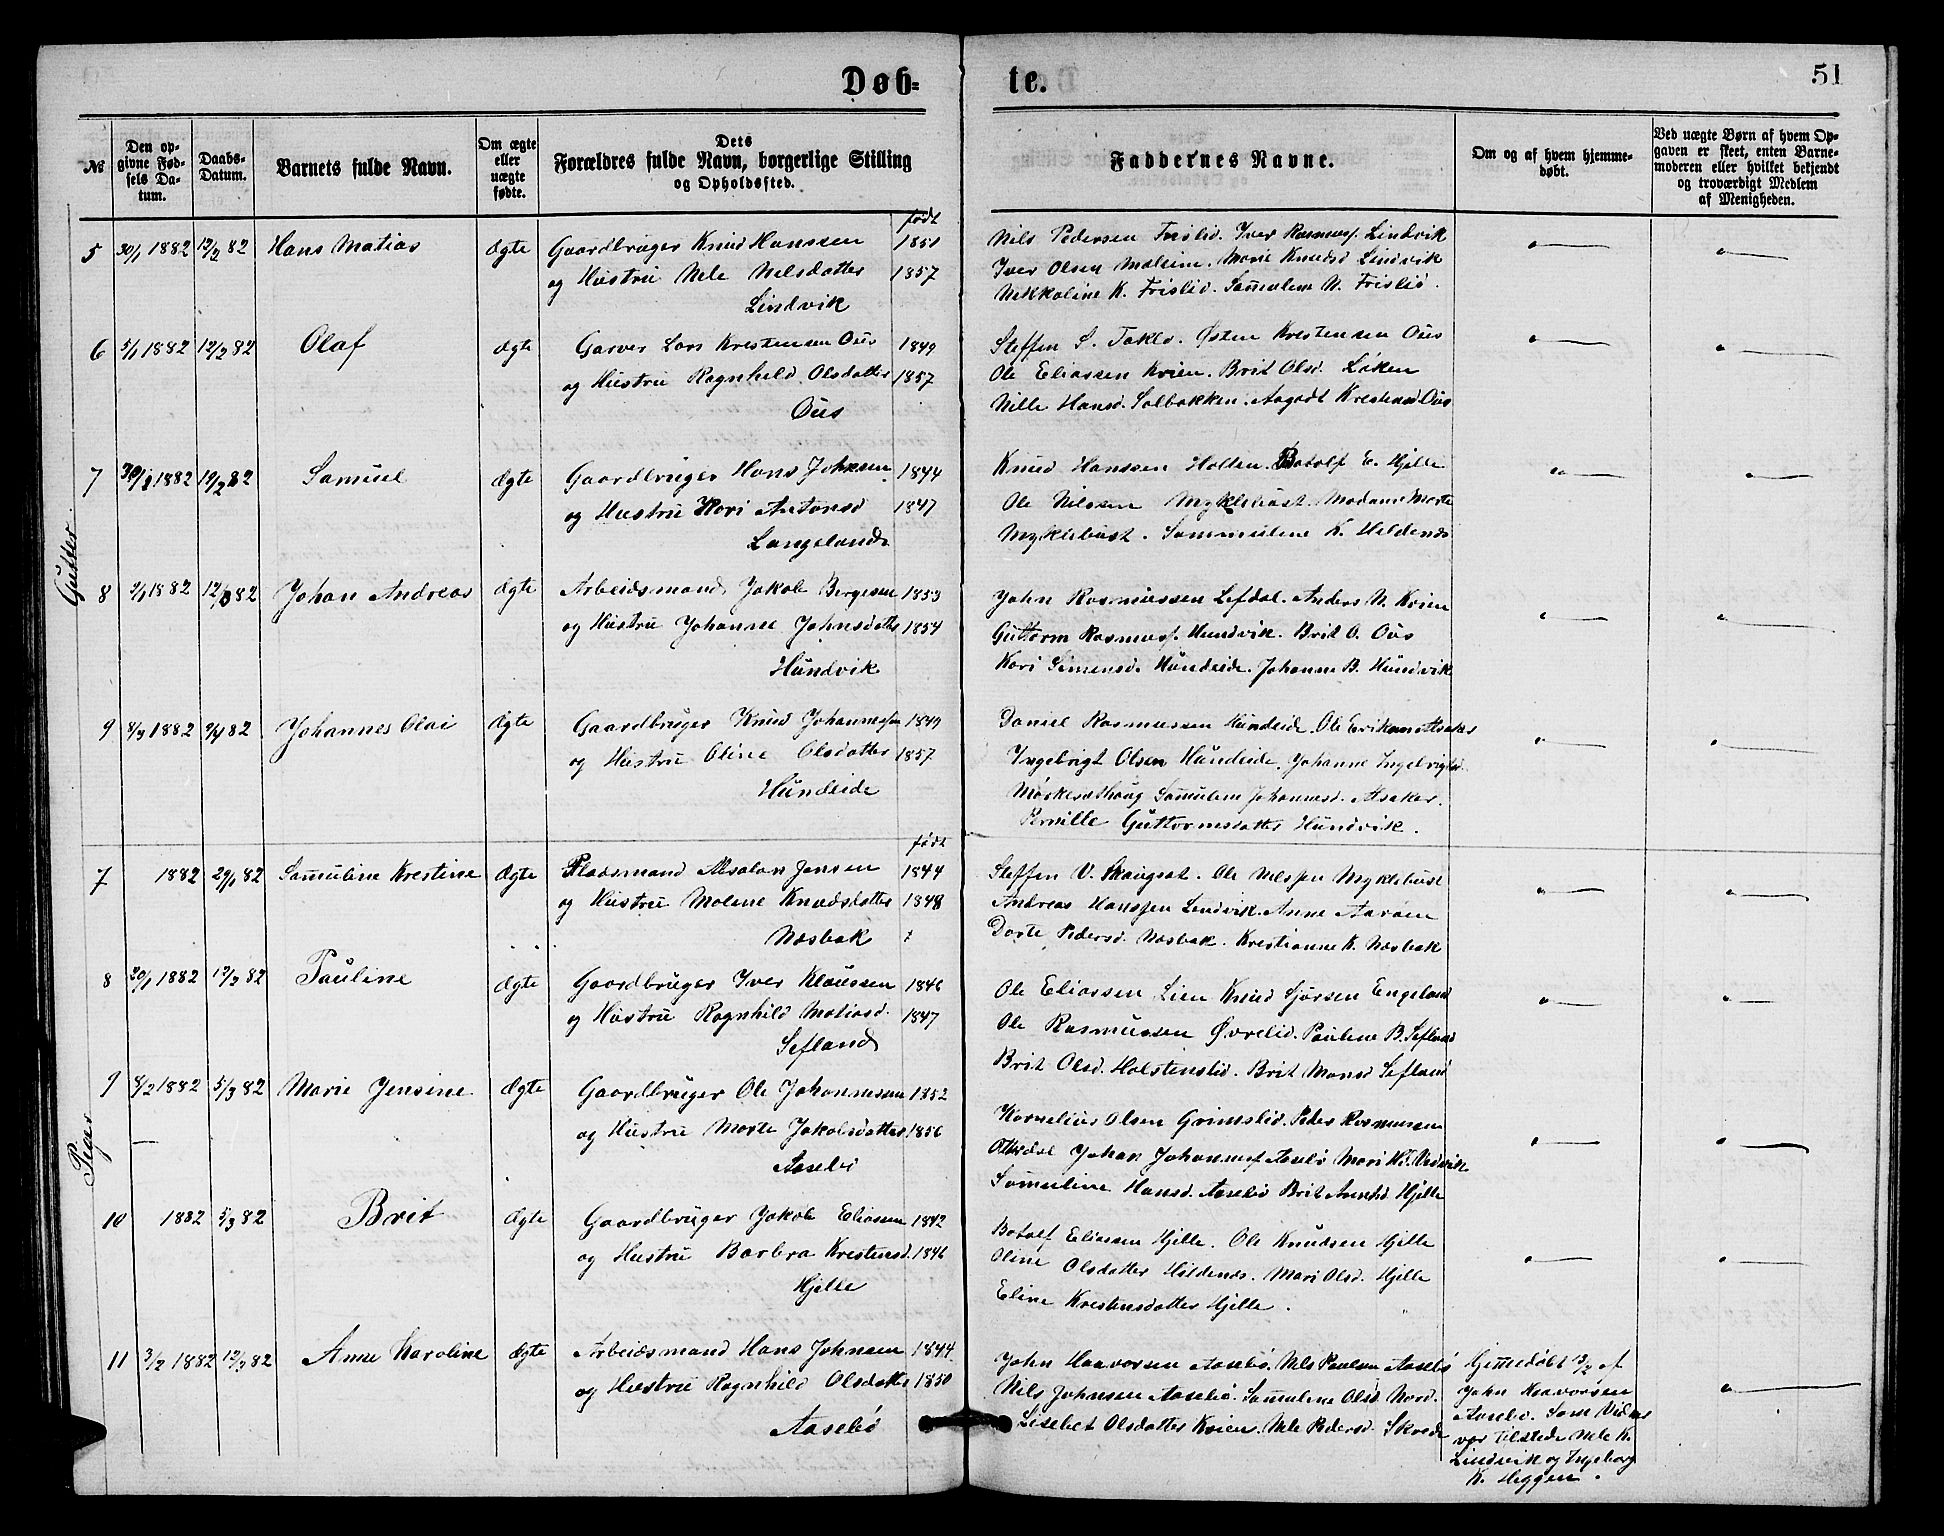 Døb-
te.
51
№
Den op-
givne Fød-
sels Da-
tum.
Daabs-
Datum.
Barnets fulde Navn.
Om ægte
eller
uægte
fødte.
Dets
Forældres fulde Navn, borgerlige Stilling
og Opholdssted.
Faddernes Navne.
Om og af hvem hjemme-
døbt.
Ved uægte Børn af hvem Op-
gaven er skeet, enten Barne-
moderen eller hvilket bekjendt
og troværdigt Medlem
af Menigheden.
Gutter.
født
5 30/1 1882 12/2 82 Hans Matias Ægte Gaardbruger Knud Hanssen 1851
og Hustru Nele Nelsdatter 1857
Lindvik
Nils Pedersen Frislid. Iver Rasmuss. Lindvik
Iver Olsen Maleim. Marie Knudsd Lindvik
Nikkoline K. Frislid. Samuline N. Frislid.
6 5/1 1882 12/2 82 Olaf Ægte Garver Lars Krestensen Ous 1849
og Hustru Ragnhild Olsdatter 1857
Ous
Steffen S. Taklo. Østen Krestensen Ous
Ole Eliassen Kvien. Brit Olsd. Løken
Nille Hansd. Solbakken. Aagodt Krestensd Ous
7 1882 19/2 82 Samuel Ægte Gaardbruger Hans Johnsen 1844
og Hustru Kari Antonsd 1847
Langeland
Knud Hanssen Holten. Botolf E. Hjelle
Ole Nilssen Myklebust. Madame Marte
Myklebust. Sammuline K. Hildenes
8 9/1 1882 82 Johan Andreas Ægte Arbeidsmand Jakob Bergesen 1853
og Hustru Johanne Johnsdatter 1854
Hundvik
John Rasmussen Lefdal. Anders N. Kvien
Guttorm Rasmuss. Hundvik. Brit O. Ous
Kari Simensd. Hundeide. Johanne B. Hundvik
9 8/3 1882 9/4 82 Johannes Olai Ægte Gaardbruger Knud Johannessen 1849
og Hustru Oline Olsdatter 1857
Hundeide
Daniel Rasmussen Hundeide. Ole Eriksen Alsaker
Ingebrigt Olsen Hundeide. Johanne Ingebrigtsd.
Samuline Johannesd. Alsaker.
Pernille Guttormsdatter Hundvik.
Piger
født
7 1882 29/1 82 Samuline Krestine Ægte Pladsmand Absalon Jensen 1844
og Hustru Malene Knudsdatter 1848
Næsbak
Steffen V. Skaugset. Ole Nelssen Myklebust
Andreas Hanssen Lindvik. Anne Aarøen
Dorte Pedersd. Næsbak. Krestianne K. Næsbak
8 20/1 1882 12/2 82 Pauline Ægte Gaardbruger Iver Klaussen 1846
og Hustru Ragnhild Matiasd. 1847
Sefland
Ole Eliassen Lien Knud Sjursen Engeland
Ole Rasmussen Øvrelid. Pauline B. Sefland
Brit Olsd. Holstenslid. Brit Monsd Sefland
9 8/2 1882 5/3 82 Marie Jensine Ægte Gaardbruger Ole Johannessen 1852
og Hustru Marte Jakobsdatter 1856
Aasebø
Kornelius Olsen Grimslid. Peder Rasmussen
Johan Johanness Aasebø
Samuline Hansd. Aasebø Brit Hjelle
10 1882 5/3 82 Brit Ægte Gaardbruger Jakob Eliassen 1842
og Hustru Barbra Krestensd. 1846
Hjelle
Botolf Eliassen Hjelle. Ole Knudsen Hjelle
Oline Olsdatter Hildenes. Mari Olsd. Hjelle
Eline Krestensdatter Hjelle.
11 3/2 1882 82 Anne Karoline Ægte Arbeidsmand Hans Johnsen 1844
og Hustru Ragnhild Olsdatter 1850
Aasebø
John Haavorsen Aasebø. Nels Paulsen Aasebø
Nils Johnsen Aasebø. Samuline Olsd. Nord.
Lisebet Olsdatter Kvien. Nele Pedersd. Skrede
Hjemedøbt af
John Haavorsen
Aasebø. Som Vidner
var tilstede Nele K.
Lindvik og Ingeborg
K. Heggen.